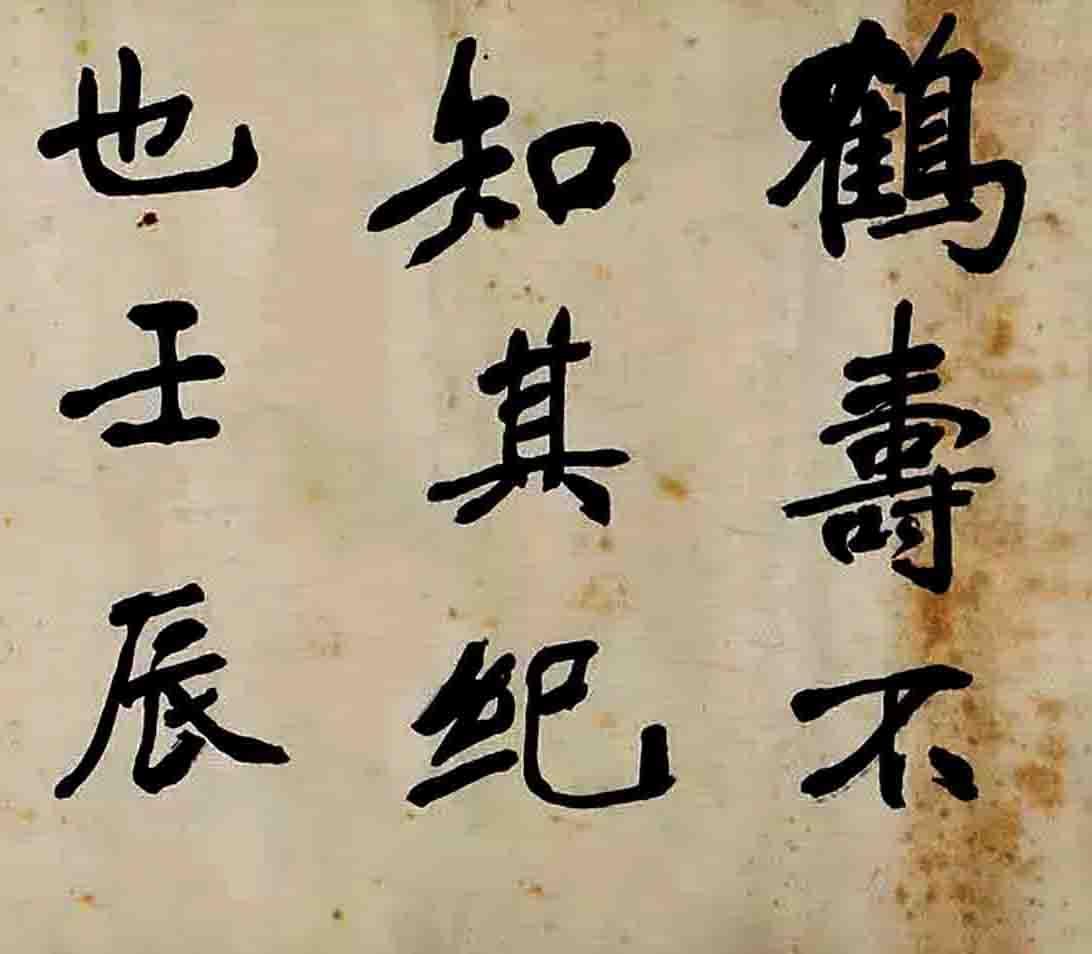 鶴壽不
知其紀
也壬辰